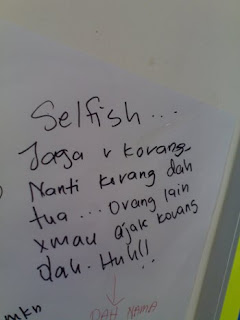 Selfish...
Jaga r korang
Nanti korang dah
tua... Orang lain
xmau ajak korang
dah. Huh!!
DAH NAMA